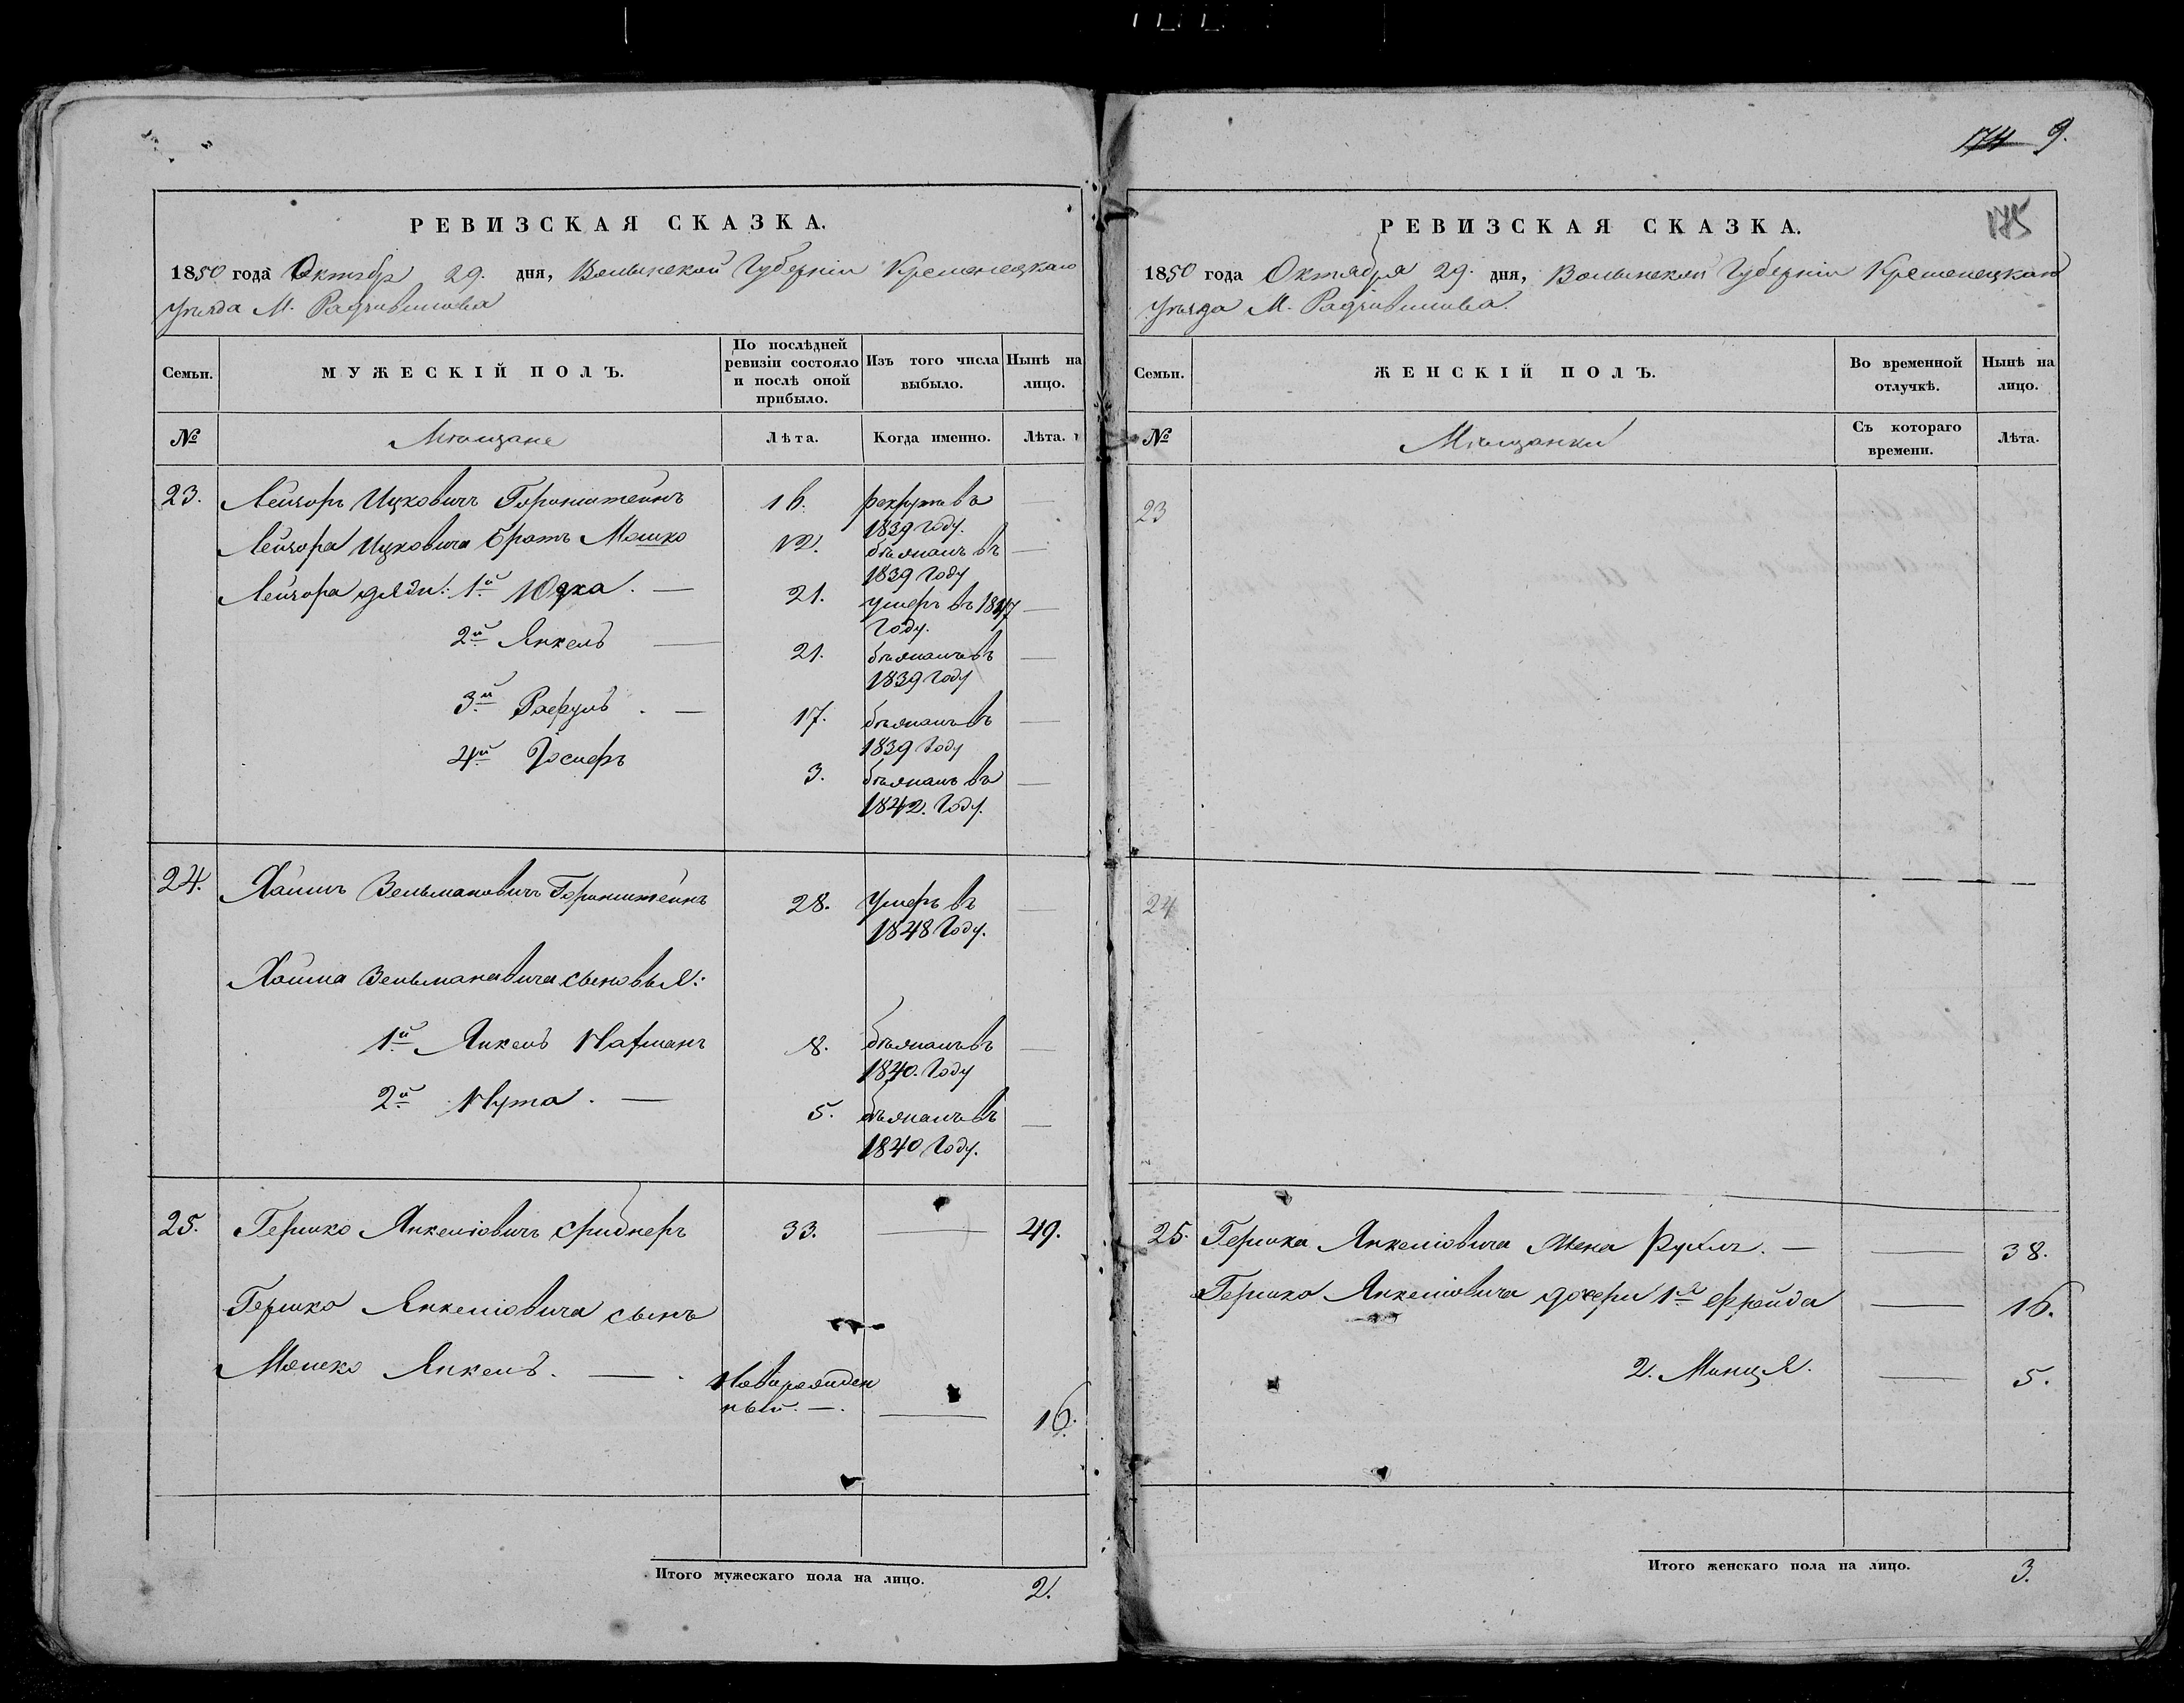 РЕВИЗСКАЯ СКАЗКА.
1850 года Октября 29. дня, Волынской Губерніи Кременецкаго
Уѣзда М. Радзивилова
Семьи.
МУЖЕСКІЙ ПОЛЪ.
По послѣдней ревизіи состояло и послѣ оной прибыло.
Изъ того числа выбыло.
Нынѣ на лицо.
№
Мѣщане
Лѣта.
Когда именно.
Лѣта.
23. Лейзоръ Ицковичъ Горнштейнъ 16. рекрутъ въ
1839 году.
Лейзора Ицковича братъ Мошко 12. бѣжалъ въ
1839 году
Лейзора дяди: 1й Юдка. — 21. умеръ въ 1847
году.
2й Янкель — 21. бѣжалъ въ
1839 году
3й Рафулъ — 17. бѣжалъ въ
1839 году
4й Іосифъ 3. бѣжалъ въ
1842. году.
24. Хаимъ Зельмановичъ Горнштейнъ 28. умеръ въ
1848 году.
Хаима Зельмановича сыновья:
1й Янкель Нахманъ 8. бѣжалъ въ
1840. году
2й Нута. — 5. бѣжалъ въ
1840 году.
25. Гершко Янкеліовичъ Фриднеръ 33. — 49.
Гершка Янкеліовича сынъ
Мошко Янкель. — Новорожден
ный. — — 16.
Итого мужескаго пола на лицо. 2.
174 9.
185
РЕВИЗСКАЯ СКАЗКА.
1850 года Октября 29. дня, Волынской Губерніи Кременецкаго
Уѣзда М. Радзивилова.
Семьи.
ЖЕНСКІЙ ПОЛЪ.
Во временной отлучкѣ.
Нынѣ на лицо.
№
Мѣщанки
Съ котораго времени.
Лѣта.
23
24
25. Гершка Янкеліовича жена Рухля. — — 38.
Гершко Янкеліовича дочери 1я Фрейда — 16.
2. Минця. — 5.
Итого женскаго пола на лицо. 3.